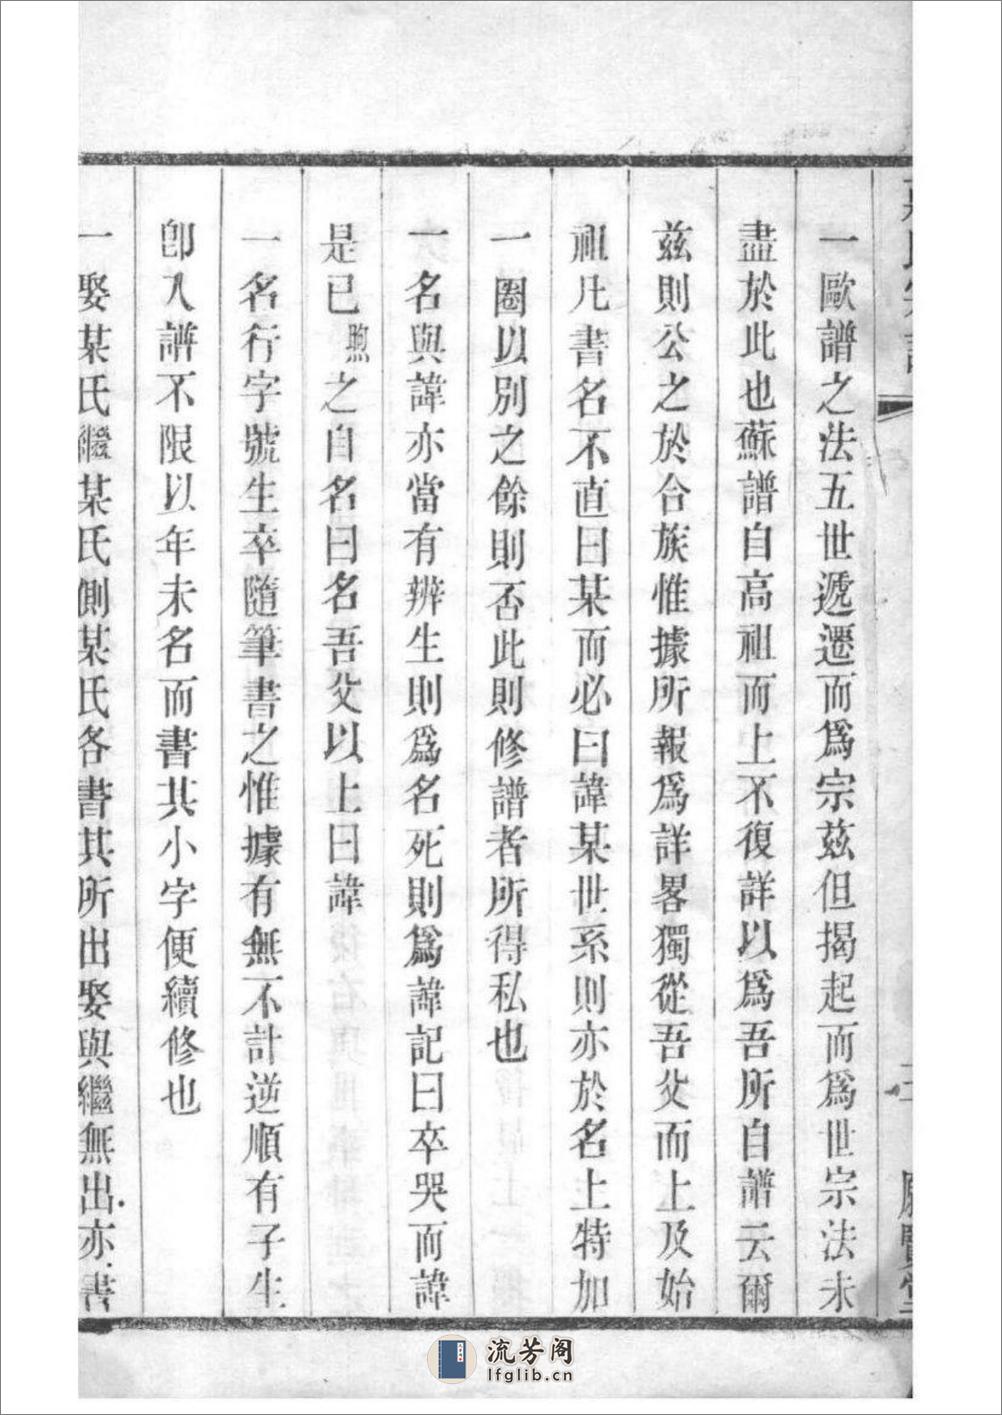 一歐譜之法五世遞遷而爲宗茲但揭起而爲世宗法未
盡於此也蘇譜自高祖而上不復詳以爲吾所自譜云爾
茲則公之於合族惟據所報爲詳畧獨從吾父而上及始
祖凡書名不直曰某而必曰諱某世系則亦於名上特加
一圈以別之餘則否此則修譜者所得私也
一名與諱亦當有辨生則爲名死則爲諱記曰卒哭而諱
是已煦之自名曰名吾父以上曰諱
一名行字號生卒隨筆書之惟據有無不計逆順有子生
卽入譜不限以年未名而書其小字便續修也
一娶某氏繼某氏側某氏各書其所出娶與繼無出亦書
流芳阁
lfglib.cn